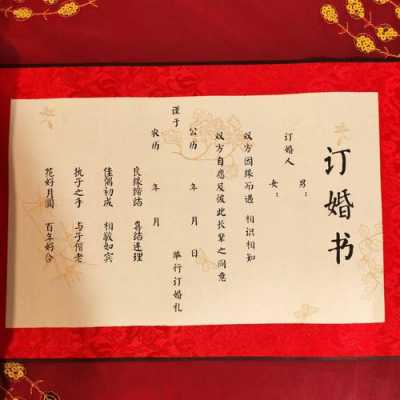 订婚书
订婚人 男：
女：
双方因缘而遇 相识相知
双方自愿及彼此长辈之同意
谨于
公历 年 月 日
农历 年 月 日
举行订婚礼
良缘缔结 喜结连理
佳偶初成 相敬如宾
执子之手 与子偕老
花好月圆 百年好合